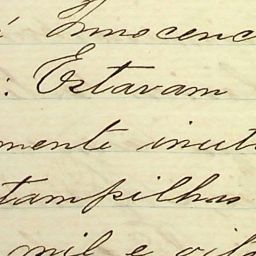 Innocenc
: Estavam
mente inut
tampilhas
mil e oit